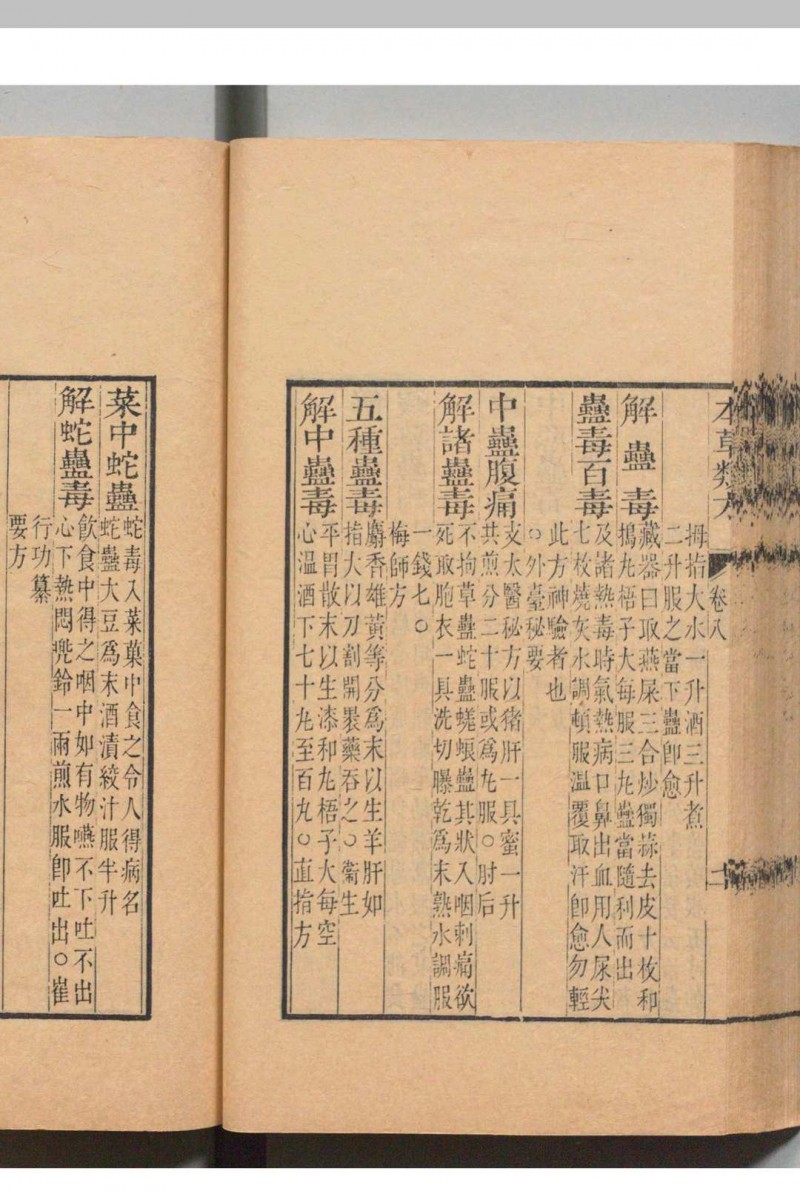 本草類方
卷八
二
拇指大水一升酒三升煮
二升服之當下蠱卽愈
解蠱毒
藏器曰取燕屎三合炒獨蒜去皮十枚和
搗丸梧子大每服三丸蠱當隨利而出
蠱毒百毒
及諸熱毒時氣熱病口鼻出血用人屎尖
七枚燒灰水調頓服溫覆取汗卽愈勿輕
此方神驗者也
○外臺秘要
中蠱腹痛
支太醫秘方以猪肝一具蜜一升
共煎分二十服或爲丸服○肘后
解諸蠱毒
不拘草蠱蛇蠱蜣蜋蠱其狀入咽刺痛欲
死取胞衣一具洗切曝乾爲末熟水調服
一錢七○
梅師方
五種蠱毒
麝香雄黃等分爲末以生羊肝如
指大以刀割開褁藥吞之○衞生
解中蠱毒
平胃散末以生漆和丸梧子大每空
心溫酒下七十丸至百丸○直指方
菜中蛇蠱
蛇毒入菜菓中食之令人得病名
蛇蠱大豆爲末酒漬絞汁服半升
解蛇蠱毒
飮食中得之咽中如有物嚥不下吐不出
心下熱悶兠鈴一兩煎水服卽吐出○崔
行功纂
要方